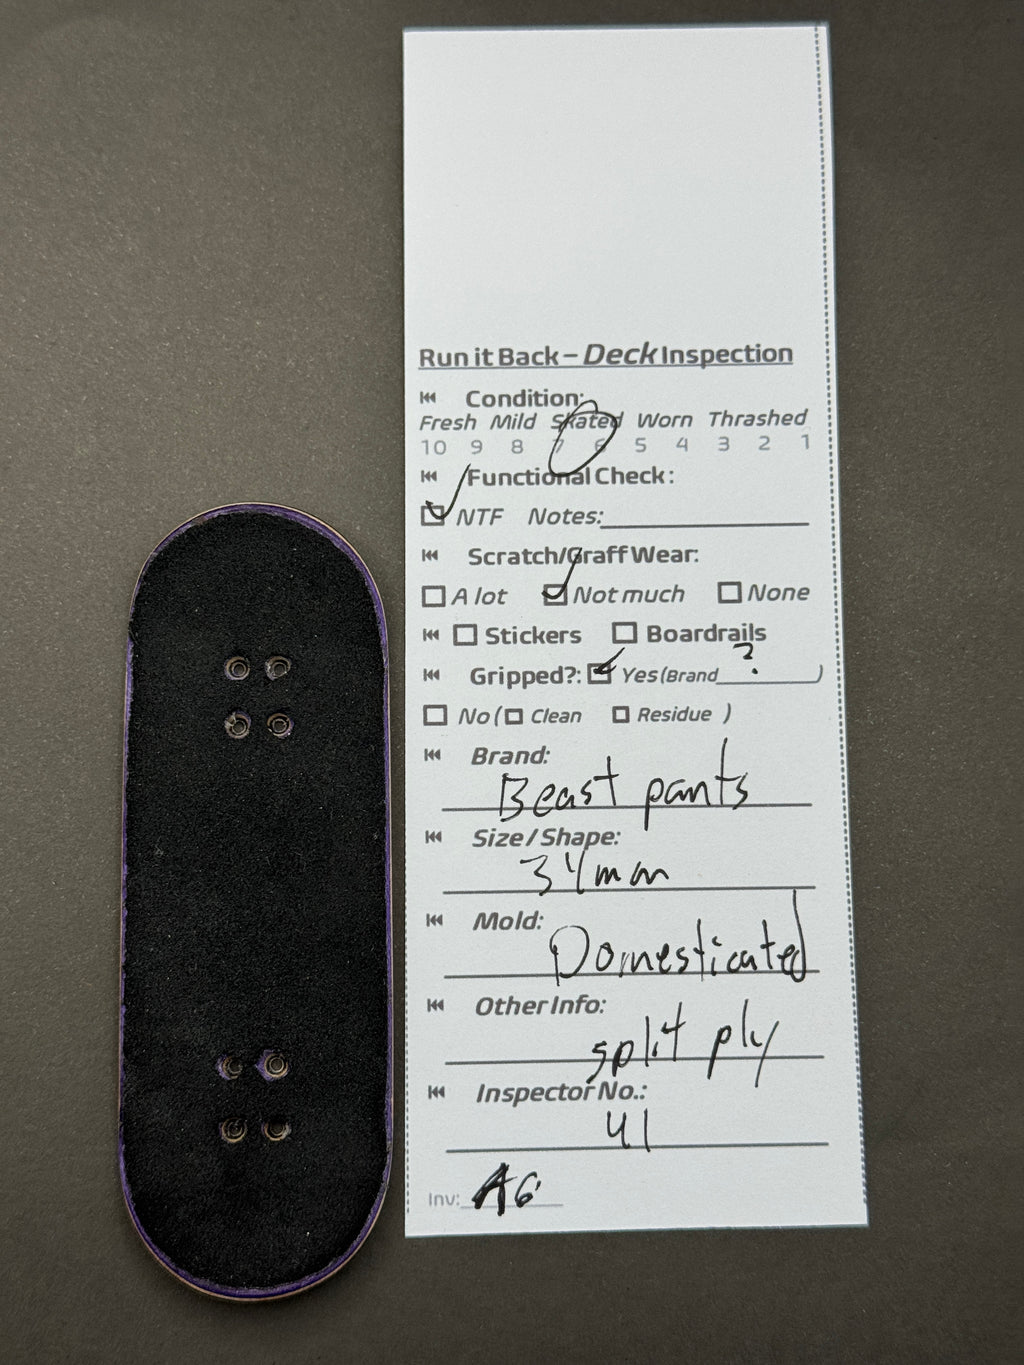 Run it Back – Deck Inspection
Condition:
Fresh Mild Skated Worn Thrashed
10 9 8 7 6 5 4 3 2 1
Functional Check:
NTF Notes:
Scratch/Graff Wear:
A lot Not much None
Stickers Boardrails
Gripped?: Yes (Brand ? )
No ( Clean Residue )
Brand:
Beast pants
Size / Shape:
34mm
Mold:
Domesticated
Other Info:
split ply
Inspector No.:
41
Inv: A6